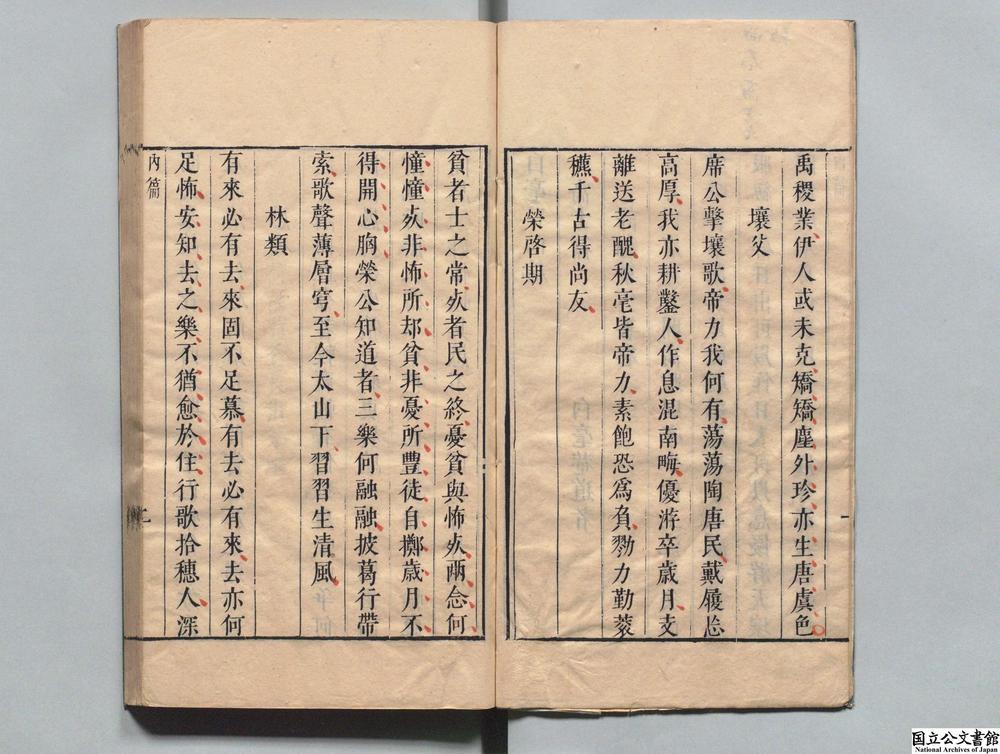 禹稷業伊人或未克矯矯塵外珍亦生唐虞色
壤父
席公擊壤歌帝力我何有蕩蕩陶唐民戴履忘
高厚我亦耕鑿人作息混南畮優游卒歲月支
離送老醜秋毫皆帝力素飽恐爲負勠力勤蔉
穮千古得尚友
榮啓期
貧者士之常𣦸者民之終憂貧與怖𣦸兩念何
憧憧𣦸非怖所却貧非憂所豐徒自擲歲月不
得開心胸榮公知道者三樂何融融披葛行帶
索歌聲薄層穹至今太山下習習生清風
林類
有來必有去來固不足慕有去必有來去亦何
足怖安知去之樂不猶愈於住行歌拾穗人深
內篇
國立公文書館
National Archives of Japan